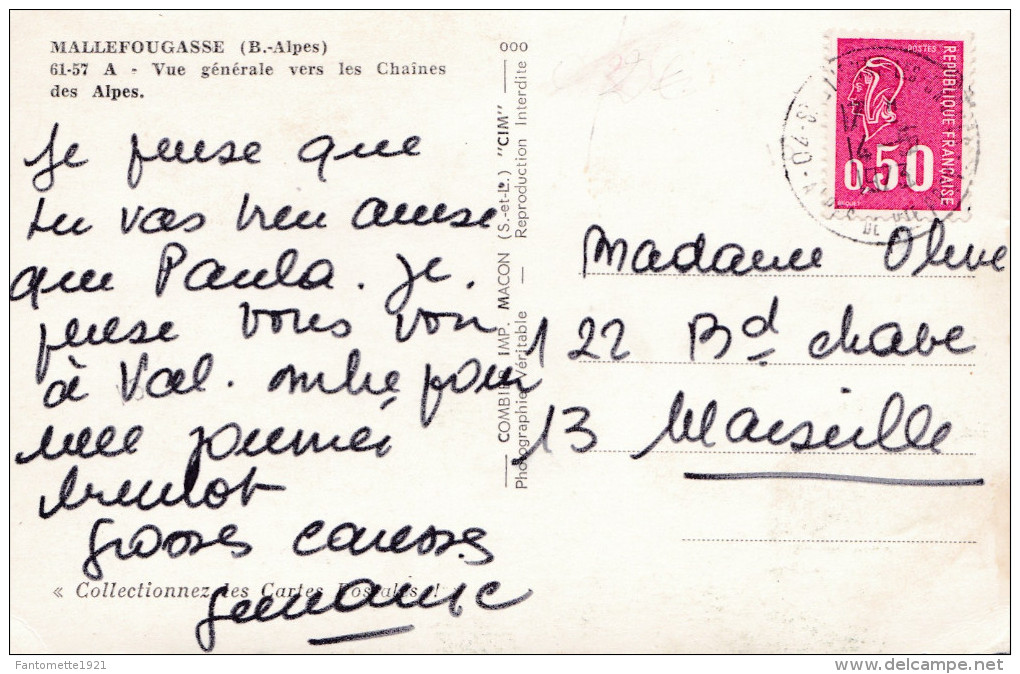 MALLEFOUGASSE (B.-Alpes)
61-57 A - Vue générale vers les Chaînes
des Alpes.
Je pense que
tu vas bien ainsi
que Paula. Je
pense vous voir
à Val. pour
une journée
bientot
Grosses caresses
« Collectionnez les Cartes Postales !
000
COMBIER IMP. MACON (S.-et-L.) "CIM"
Photographie Véritable — Reproduction Interdite
POSTES
REPUBLIQUE FRANÇAISE
0,50
17 H
1973
Madame Olive
122 Bd chave
13 Marseille
Fantometteˍ1921
delcampe.net